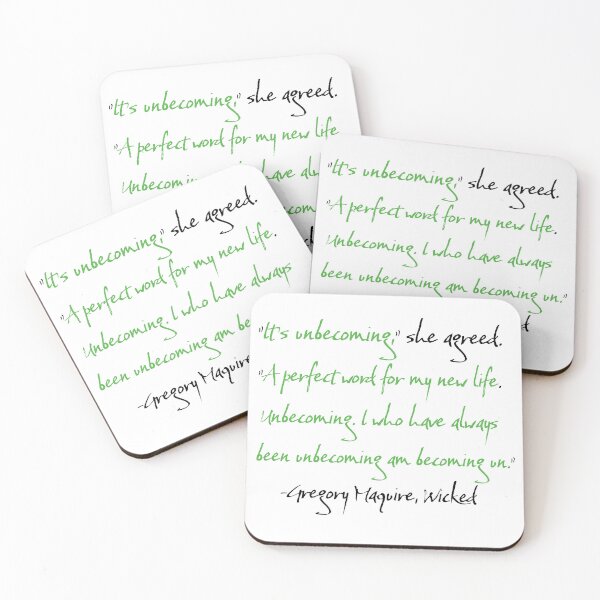 "It's unbecoming," she agreed.
"A perfect word for my new life
Unbecoming. I who have always
"It's unbecoming," she agreed.
"A perfect word for my new life.
Unbecoming. I who have always
been unbecoming am becoming un."
"It's unbecoming," she agreed.
"A perfect word for my new life.
Unbecoming. I who have always
been unbecoming am be
-Gregory Maguire,
"It's unbecoming," she agreed.
"A perfect word for my new life.
Unbecoming. I who have always
been unbecoming am becoming un."
-Gregory Maguire, Wicked